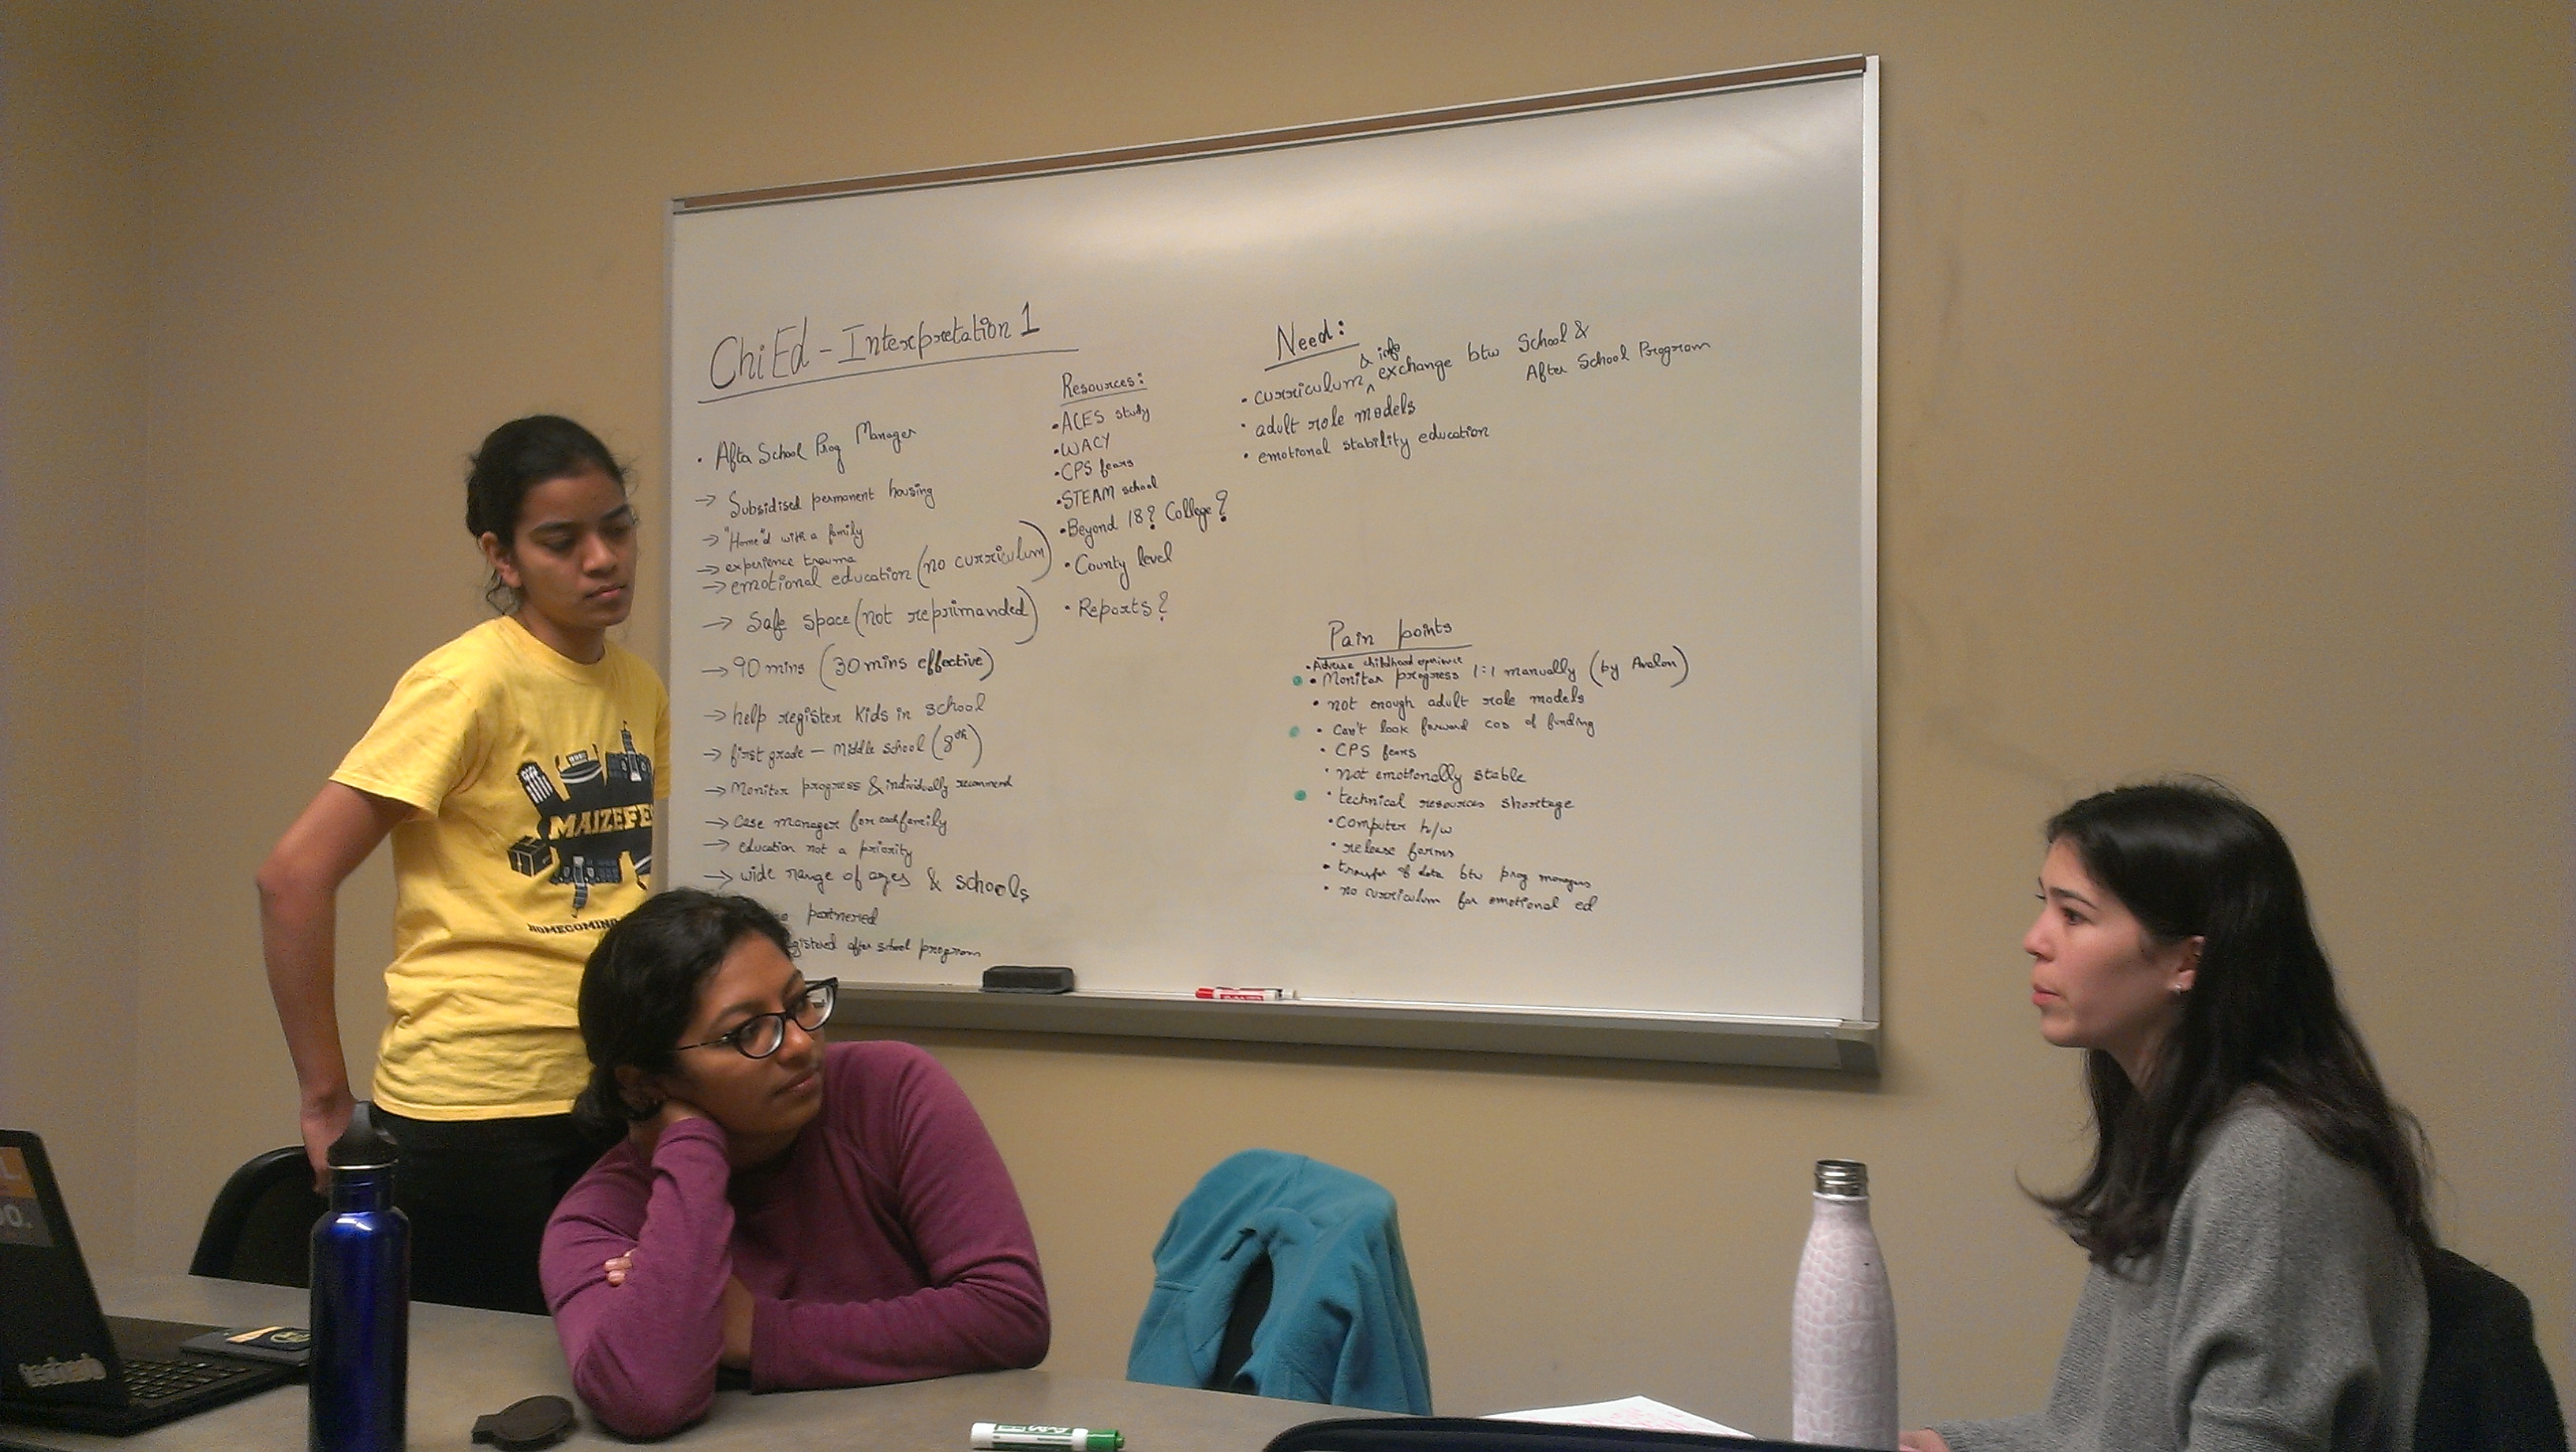 ChiEd - Interpretation 1
• After School Prog Manager
→ Subsidised permanent housing
→ "Home"d with a family
→ experience trauma
→ emotional education (no curriculum)
→ Safe space (not reprimanded)
→ 90 mins (30 mins effective)
→ help register kids in school
→ first grade - Middle school (8th)
→ Monitor progress & individually recommend
→ Case manager for each family
→ education not a priority
→ wide range of ages & schools
partnered
after school program
Resources:
• ACES study
• WACY
• CPS fears
• STEAM school
• Beyond 18? College?
• County level
• Reports?
Need:
& info
• curriculum ^ exchange btw School &
After School Program
• adult role models
• emotional stability education
Pain points
• Adverse childhood experience
• Monitor progress 1:1 manually (by Avalon)
• not enough adult role models
• Can't look forward cos of funding
• CPS fears
• not emotionally stable
• technical resources shortage
• Computer h/w
• release forms
• transfer of data btw prog managers
• no curriculum for emotional ed
MAIZEFE
HOMECOMING